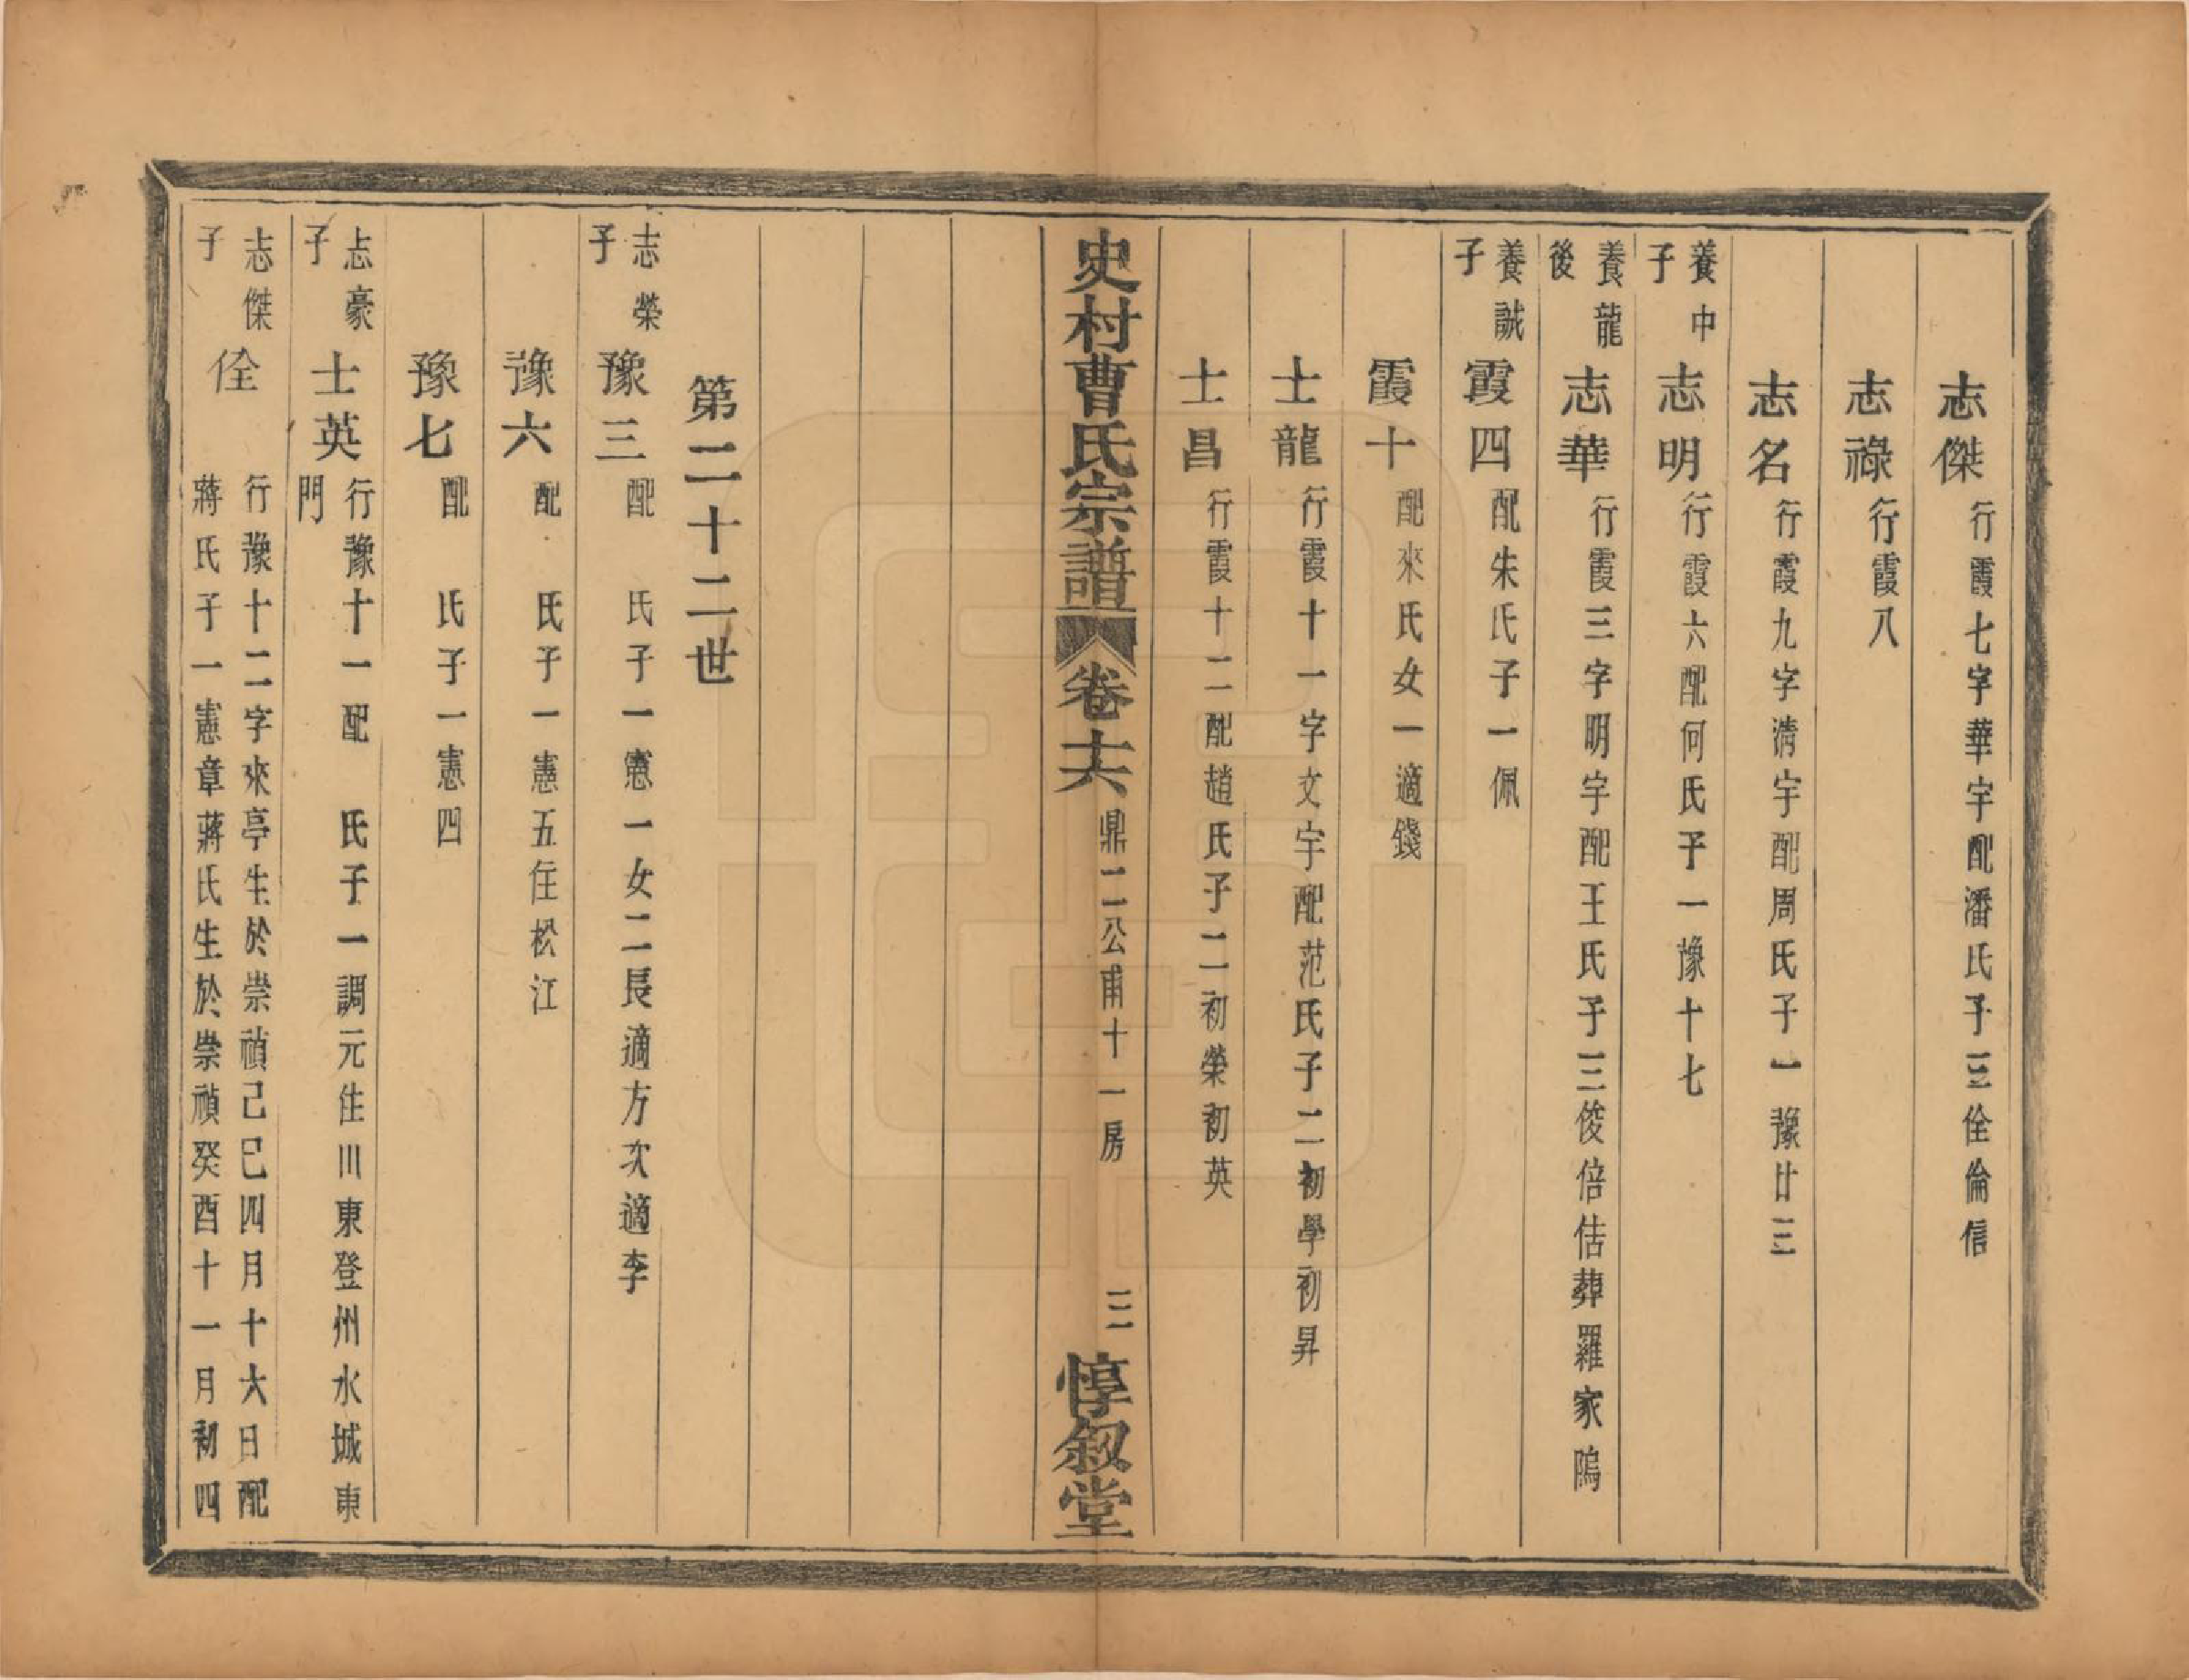 志傑 行霞七字華宇配潘氏子三佺倫信
志祿 行霞八
志名 行霞九字清宇配周氏子一豫廿三
養中子 志明 行霞六配何氏子一豫十七
養龍後 志華 行霞三字明宇配王氏子三俊倍估葬羅家塢
養誠子 霞四 配朱氏子一佩
霞十 配來氏女一適錢
士龍 行霞十一字文宇配范氏子二初學初昇
士昌 行霞十二配趙氏子二初榮初英
史村曹氏宗譜 卷十六 鼎二公甫十一房 三 惇敘堂
第二十二世
志榮子 豫三 配 氏子一憲一女二長適方次適李
豫六 配 氏子一憲五住松江
豫七 配 氏子一憲四
志豪子 士英 行豫十一配 氏子一調元住川東登州水城東
門
志傑子 佺 行豫十二字來亭生於崇禎己巳四月十六日配
蔣氏子一憲章蔣氏生於崇禎癸酉十一月初四